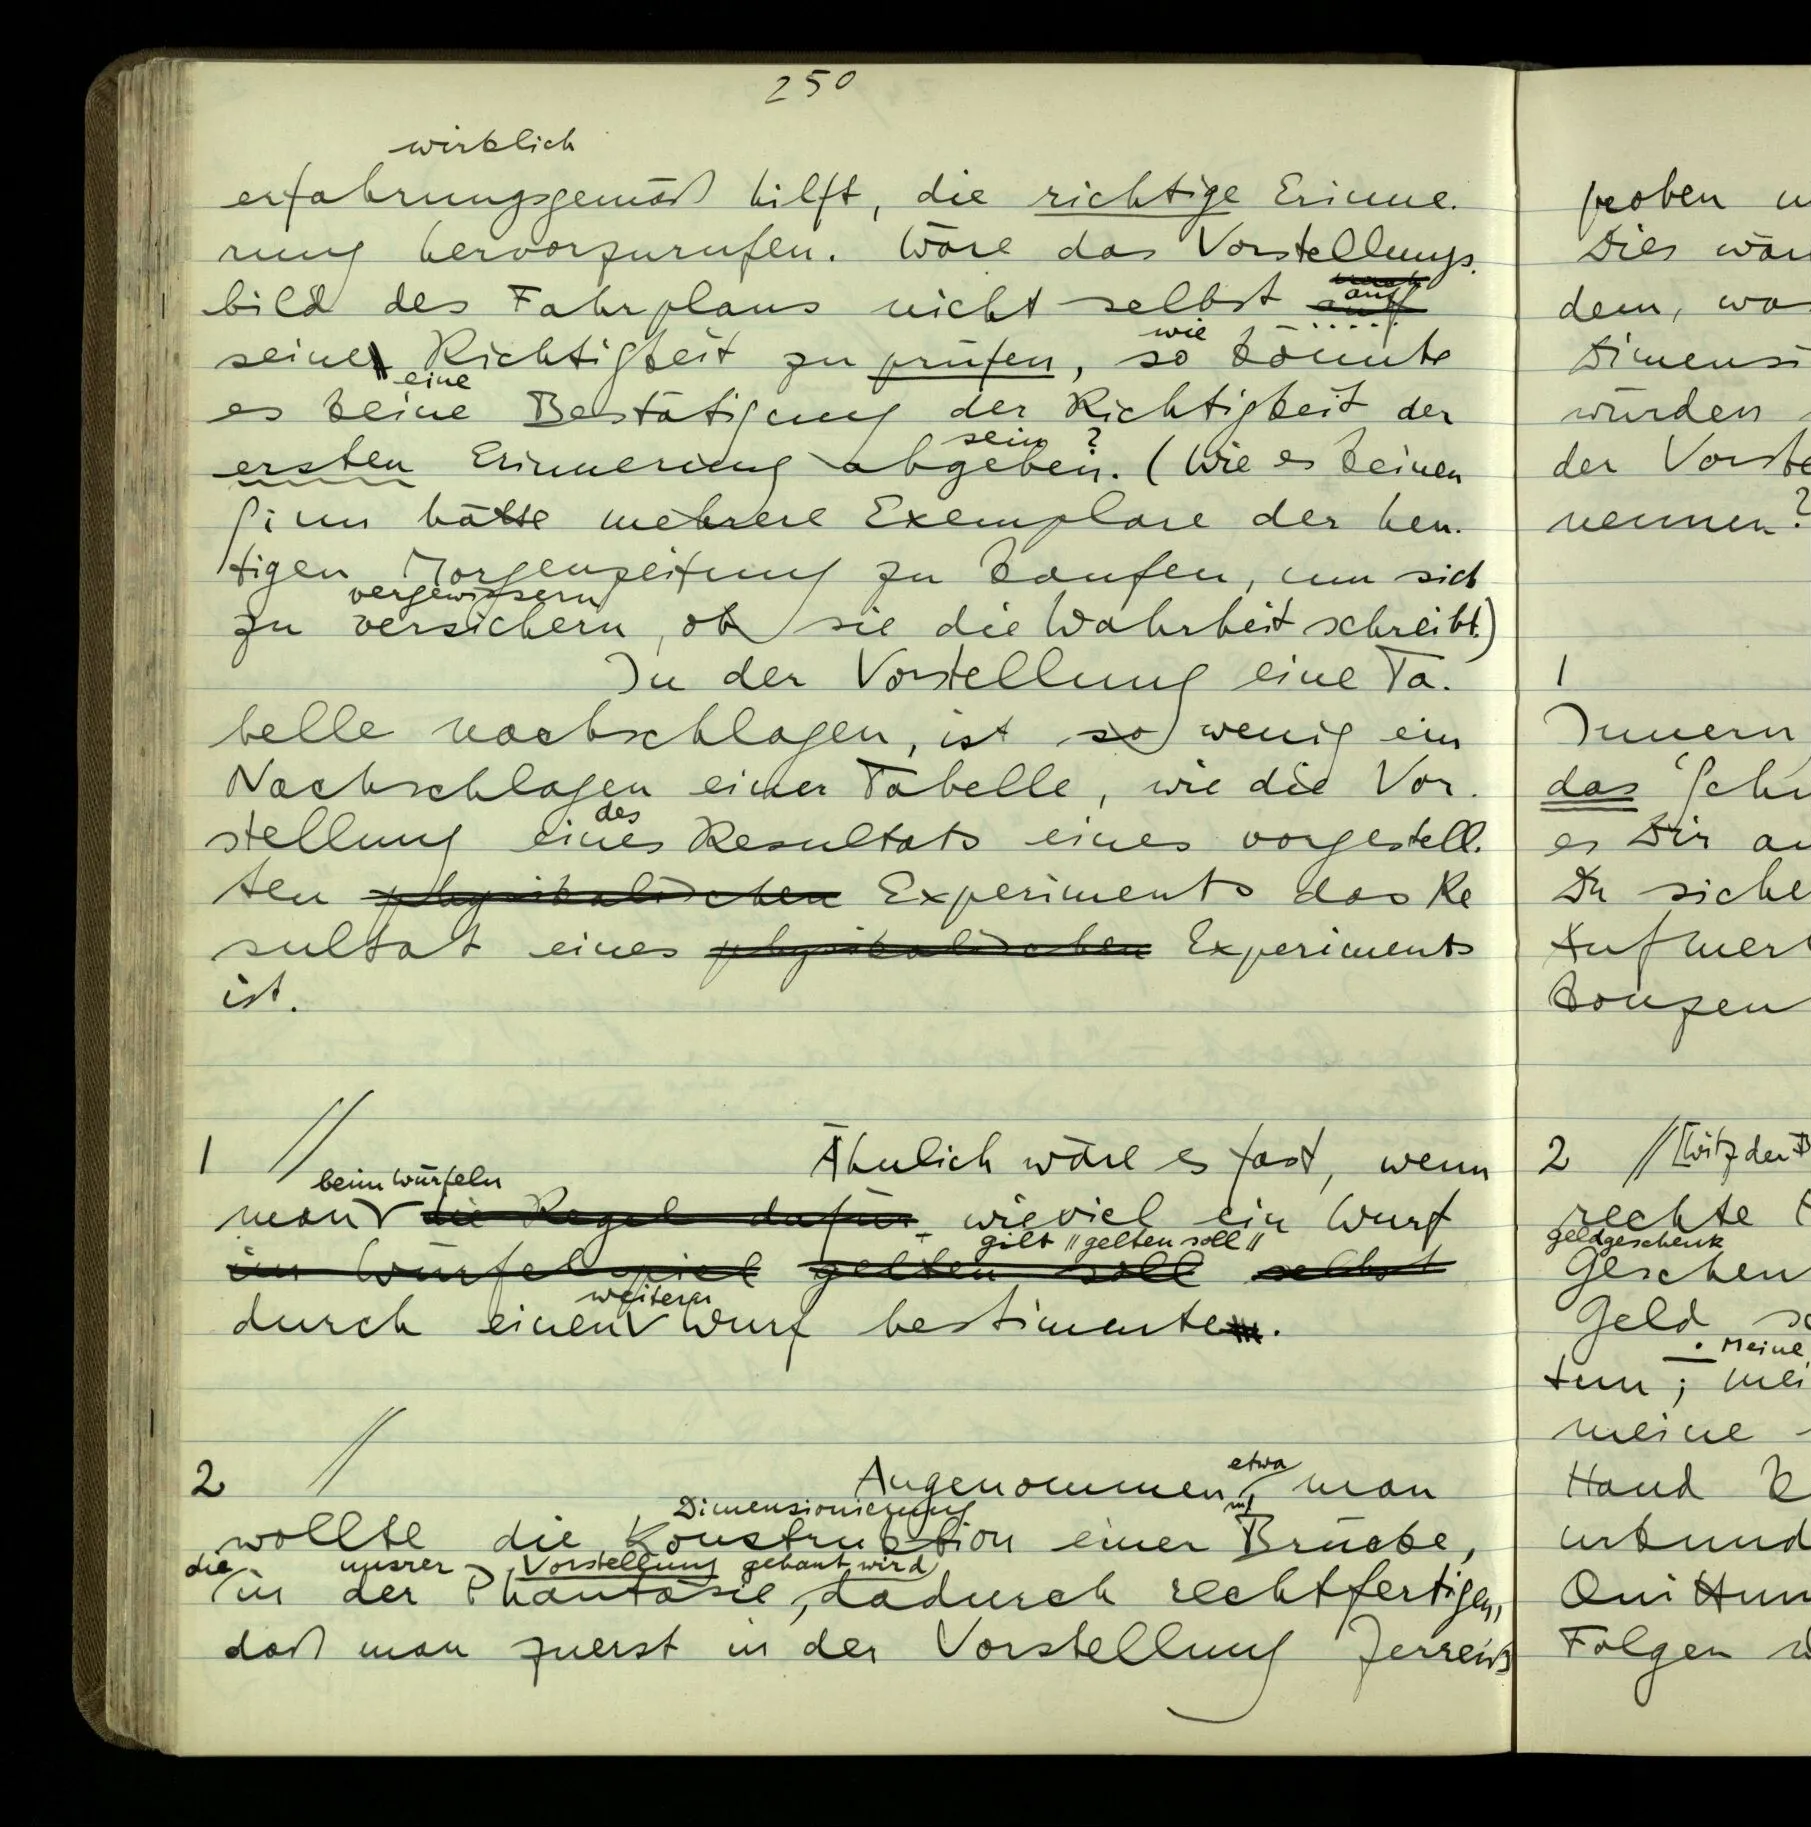 250
wirklich
erfahrungsgemäß hilft, die richtige Erinne-
rung hervorzurufen. Wäre das Vorstellungs-
bild des Fahrplans nicht selbst auf
seine Richtigkeit zu prüfen, so könnte
wie
es keine Bestätigung der Richtigkeit der
eine
ersten Erinnerung abgeben. (Wie es keinen
sein?
Sinn hätte mehrere Exemplare der heu-
tigen Morgenzeitung zu kaufen, um sich
zu versichern, ob sie die Wahrheit schreibt.)
vergewissern
In der Vorstellung eine Ta-
belle nachschlagen, ist so wenig ein
Nachschlagen einer Tabelle, wie die Vor-
stellung eines Resultats eines vorgestell-
des
ten physikalischen Experiments das Re
sultat eines physikalischen Experiments
ist.
1 // Ähnlich wäre es fast, wenn
beim Würfeln
man die Regel dafür wieviel ein Wurf
gilt "gelten soll"
im Würfelspiel gelten soll selbst
weiteren
durch einen Wurf bestimmte.
2 // Angenommen, man
etwa
wollte die Konstruktion einer Brücke,
Dimensionierung
die in der Phantasie, dadurch rechtfertigen,
unsrer Vorstellung gebaut wird
daß man zuerst in der Vorstellung Zerreiß
proben
Dies wär
dem, was
Dimensi
würden
der Vorste
nennen?
1
Innern
das
es Dir an
Du siche
Aufmer
konzen
2 // [Witz der
rechte
Geldgeschenk
Geschen
Geld
Meine
tun; mei
meine
Hand
urkund
Quittun
Folgen